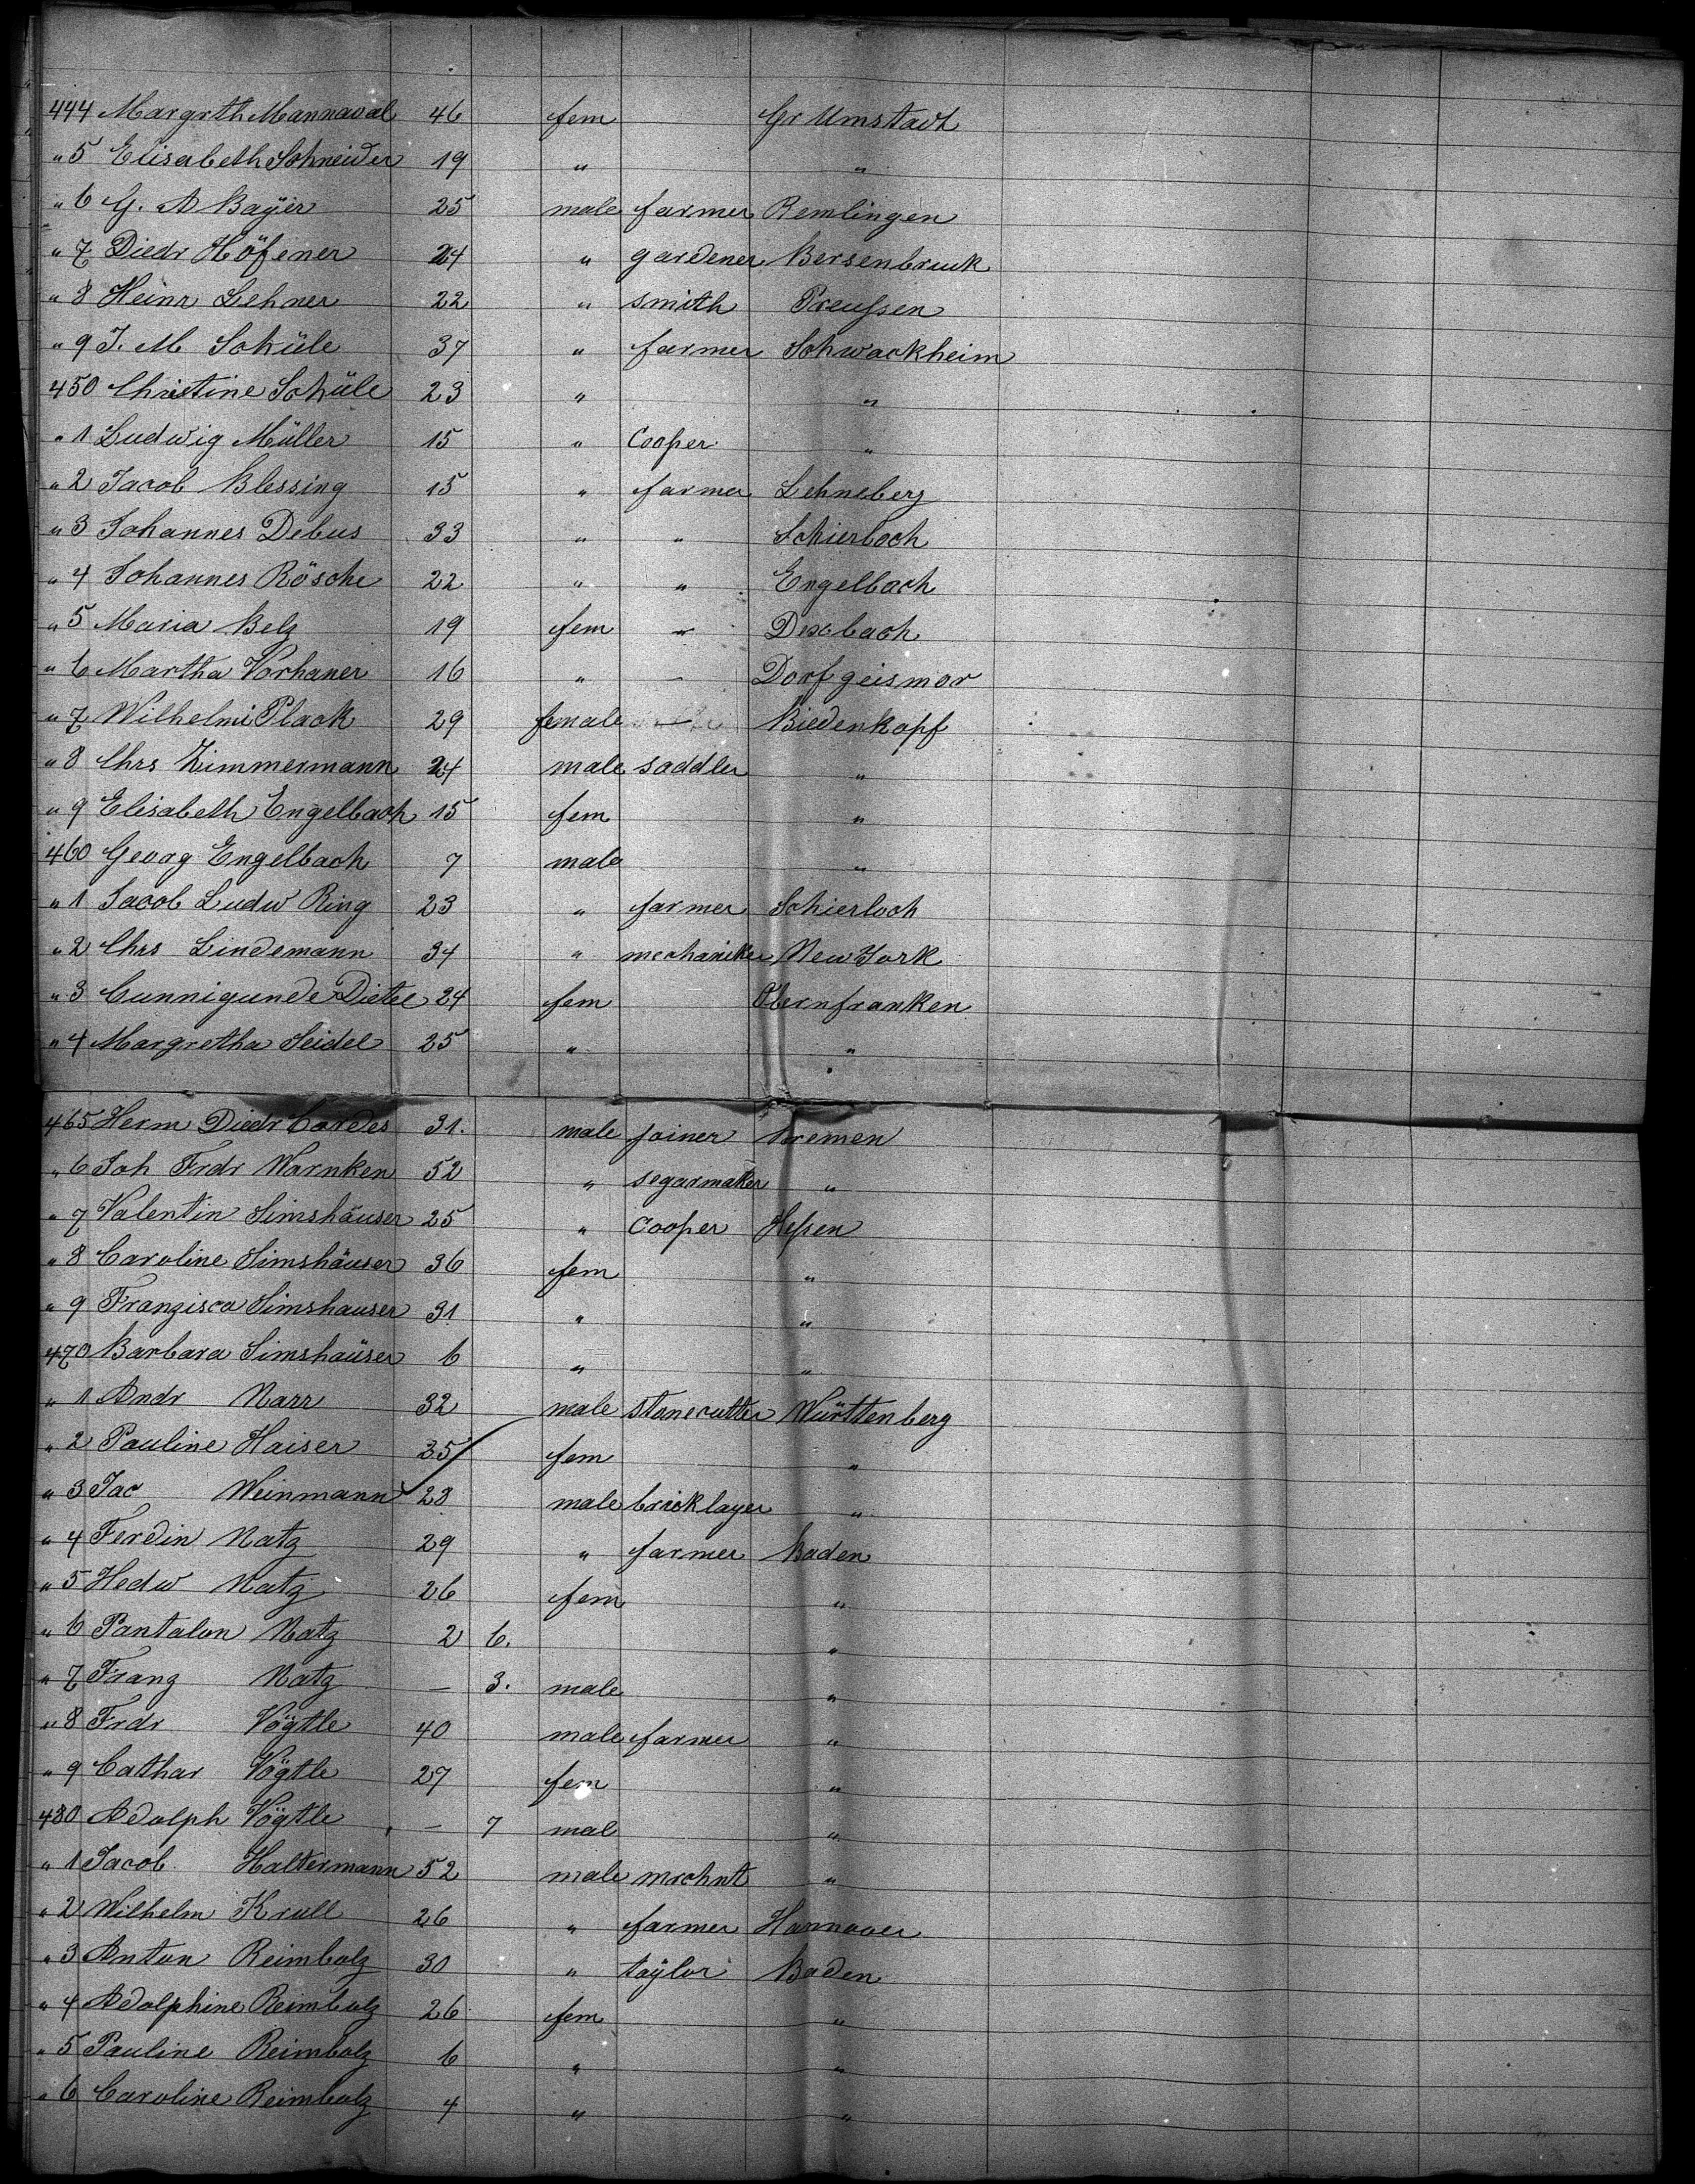 444 Margrth Mannaval 46 fem Gr Umstadt
" 5 Elisabeth Schneider 19 " "
" 6 G. A Bayer 25 male farmer Remlingen
" 7 Diedr Höfener 24 " gardener Bersenbruck
" 8 Heinr Lehner 22 " smith Preußen
" 9 J. M Schüle 37 " farmer Schwackheim
450 Christine Schüle 23 " "
" 1 Ludwig Müller 15 " Cooper "
" 2 Jacob Blessing 15 " farmer Lehneberg
" 3 Johannes Debus 33 " " Schierloch
" 4 Johannes Rösche 22 " " Engelbach
" 5 Maria Belz 19 fem — Dexbach
" 6 Martha Vorhaner 16 " — Dorfgeismar
" 7 Wilhelmi Plack 29 female — Biedenkopf
" 8 Chrs Zimmermann 24 male saddler "
" 9 Elisabeth Engelbach 15 fem "
460 Georg Engelbach 7 male "
" 1 Jacob Ludw Ring 23 " farmer Schierloch
" 2 Chrs Lindemann 34 " mechaniker New York
" 3 Cunnigunde Dietel 24 fem Obernfranken
" 4 Margretha Seidel 25 " "
465 Herm Diedr Cordes 31. male joiner Bremen
" 6 Joh Frdr Warnken 52 " segarmaker "
" 7 Valentin Simshäuser 25 " Cooper Heßen
" 8 Caroline Simshäuser 36 fem "
" 9 Franzisca Simshauser 31 " "
470 Barbara Simshäuser 6 " "
" 1 Andr Narr 32 male stonecutter Württenberg
" 2 Pauline Haiser 35 fem "
" 3 Jac Weinmann 28 male bricklayer "
" 4 Ferdin Matz 29 " farmer Baden
" 5 Hedw Matz 26 fem "
" 6 Pantalon Matz 2 6. "
" 7 Franz Matz — 3. male "
" 8 Frdr Vögtle 40 male farmer "
" 9 Cathar Vögtle 27 fem "
480 Adolph Vögtle — 7 mal "
" 1 Jacob Haltermann 52 male mrchnt "
" 2 Wilhelm Krull 26 " farmer Hannover
" 3 Anton Reimbolz 30 " taylor Baden
" 4 Adolphine Reimbolz 26 fem "
" 5 Pauline Reimbolz 6 " "
" 6 Caroline Reimbolz 4 " "